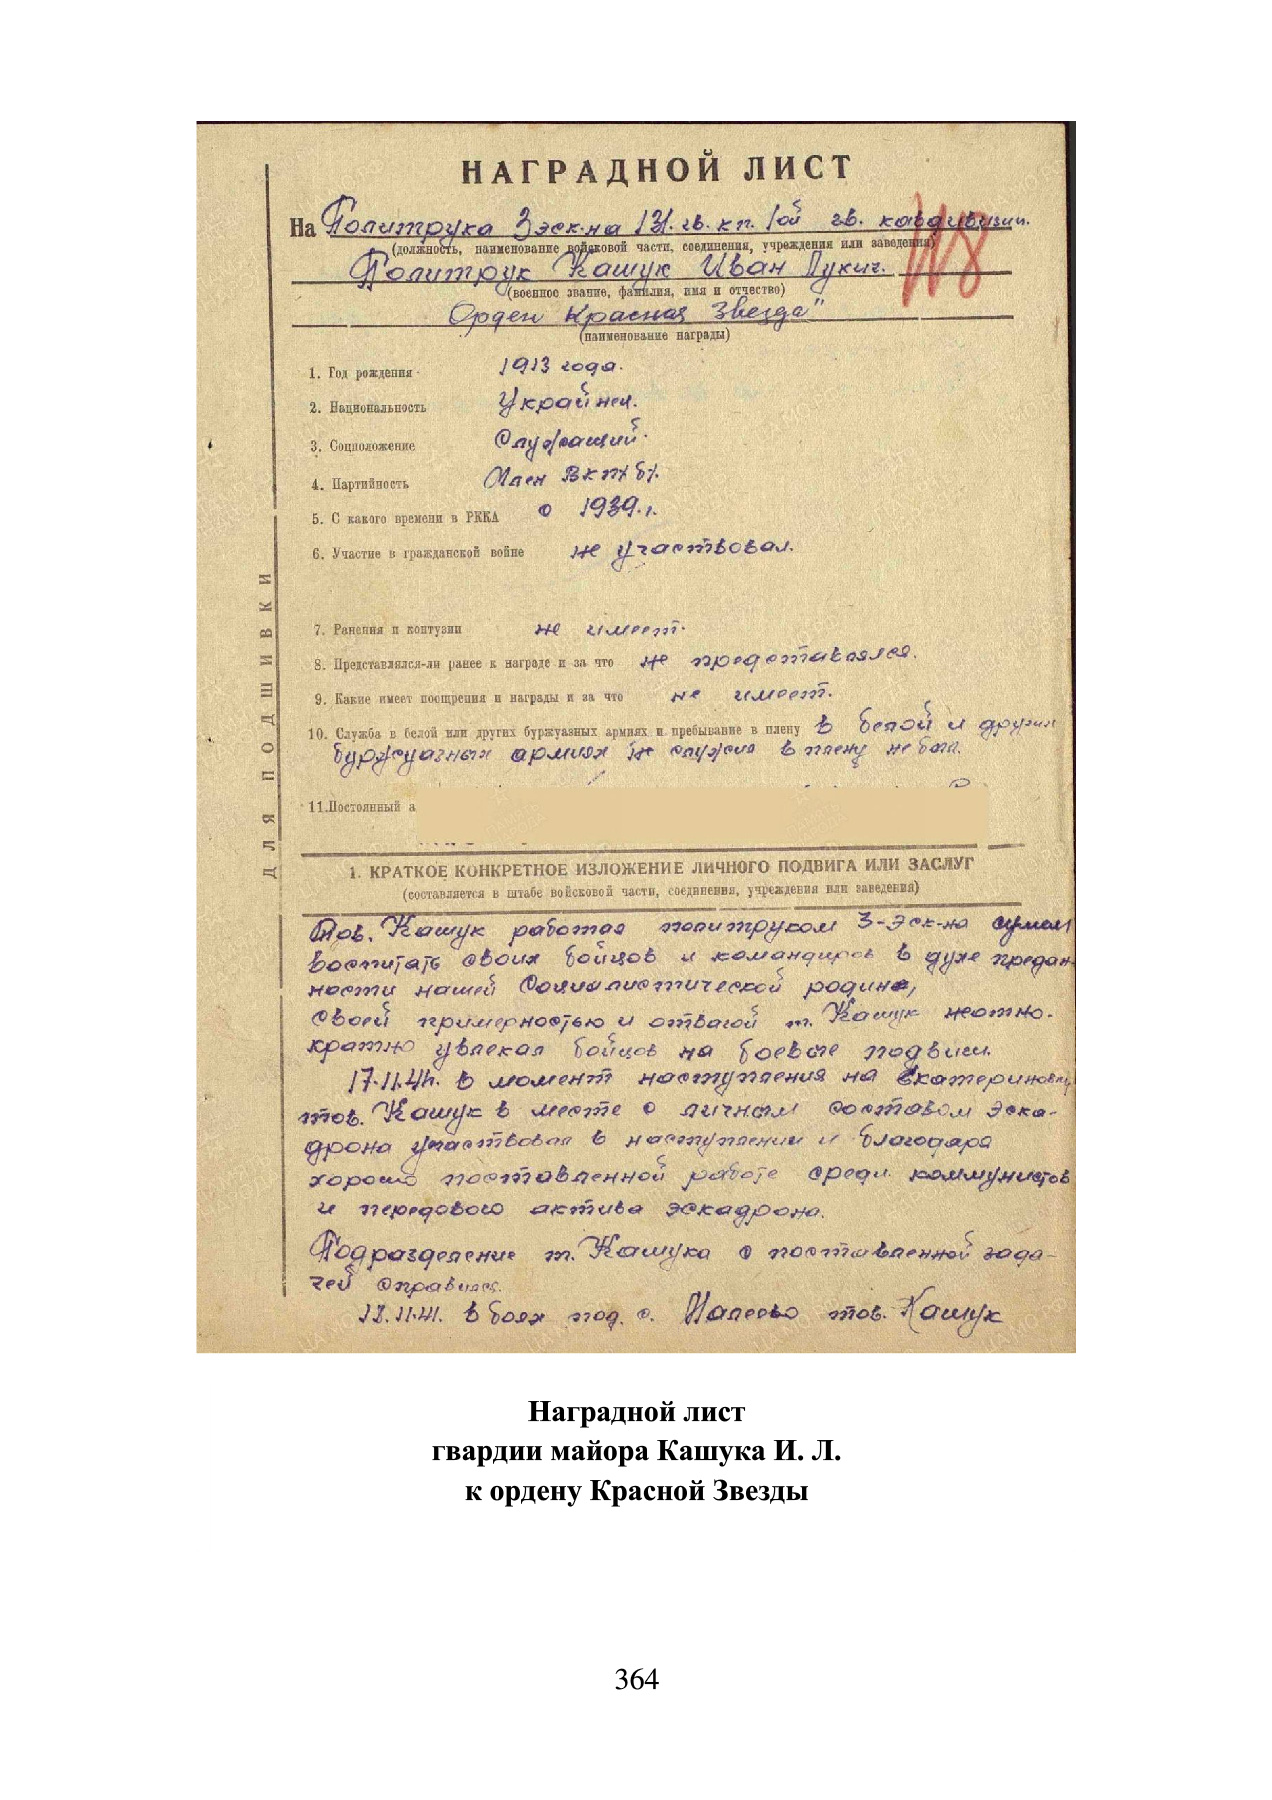 НАГРАДНОЙ ЛИСТ
На Политрука 3 эск-на 131 гв. кп. 1ой гв. кавдивизии.
(должность, наименование войсковой части, соединения, учреждения или заведения)
Политрук Кашук Иван Лукич.
(военное звание, фамилия, имя и отчество)
Орден Красная Звезда"
(наименование награды)
1. Год рождения 1913 года.
2. Национальность Украйнец.
3. Соцположение Служащий.
4. Партийность Член ВКП/б/.
5. С какого времени в РККА с 1939 г.
6. Участие в гражданской войне не участвовал.
7. Ранения и контузии не имеет.
8. Представлялся-ли ранее к награде и за что не представлялся.
9. Какие имеет поощрения и награды и за что не имеет.
10. Служба в белой или других буржуазных армиях и пребывание в плену в белой и других
буржуазных армиях не служил в плену не был.
11. Постоянный а
ДЛЯ ПОДШИВКИ
1. КРАТКОЕ КОНКРЕТНОЕ ИЗЛОЖЕНИЕ ЛИЧНОГО ПОДВИГА ИЛИ ЗАСЛУГ
(составляется в штабе войсковой части, соединения, учреждения или заведения)
Тов. Кашук работая политруком 3-эск-на сумел
воспитать своих бойцов и командиров в духе предан-
ности нашей Социалистической родине,
своей примерностью и отвагой т. Кашук неодно-
кратно увлекал бойцов на боевые подвиги.
17.11.41г. в момент наступления на Екатериновку
тов. Кашук в месте с личным составом эска-
дрона участвовал в наступлении и благодаря
хорошо поставленной работе среди коммунистов
и передового актива эскадрона.
Подразделение т. Кашука с поставленной зада-
чей справилось.
18.11.41. в боях под. с. тов. Кашук
Наградной лист
гвардии майора Кашука И. Л.
к ордену Красной Звезды
364